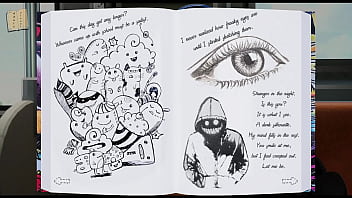 Can this day get any longer?
Whoever came up with school must be a sadist.
I never realized how freaky eyes are
until I started sketching them.
Stranger in the night,
Is this you?
It is what I see.
A dark silhouette,
My mind fully in the net.
You smile at me,
but I feel creeped out.
Let me be.